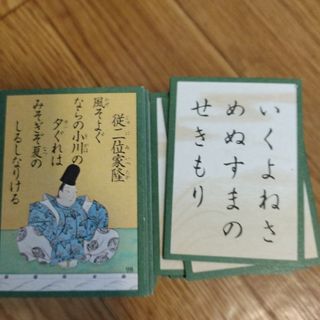 従二位家隆
風そよぐ
ならの小川の
夕ぐれは
みそぎぞ夏の
しるしなりける
いくよねさ
めぬすまの
せきもり